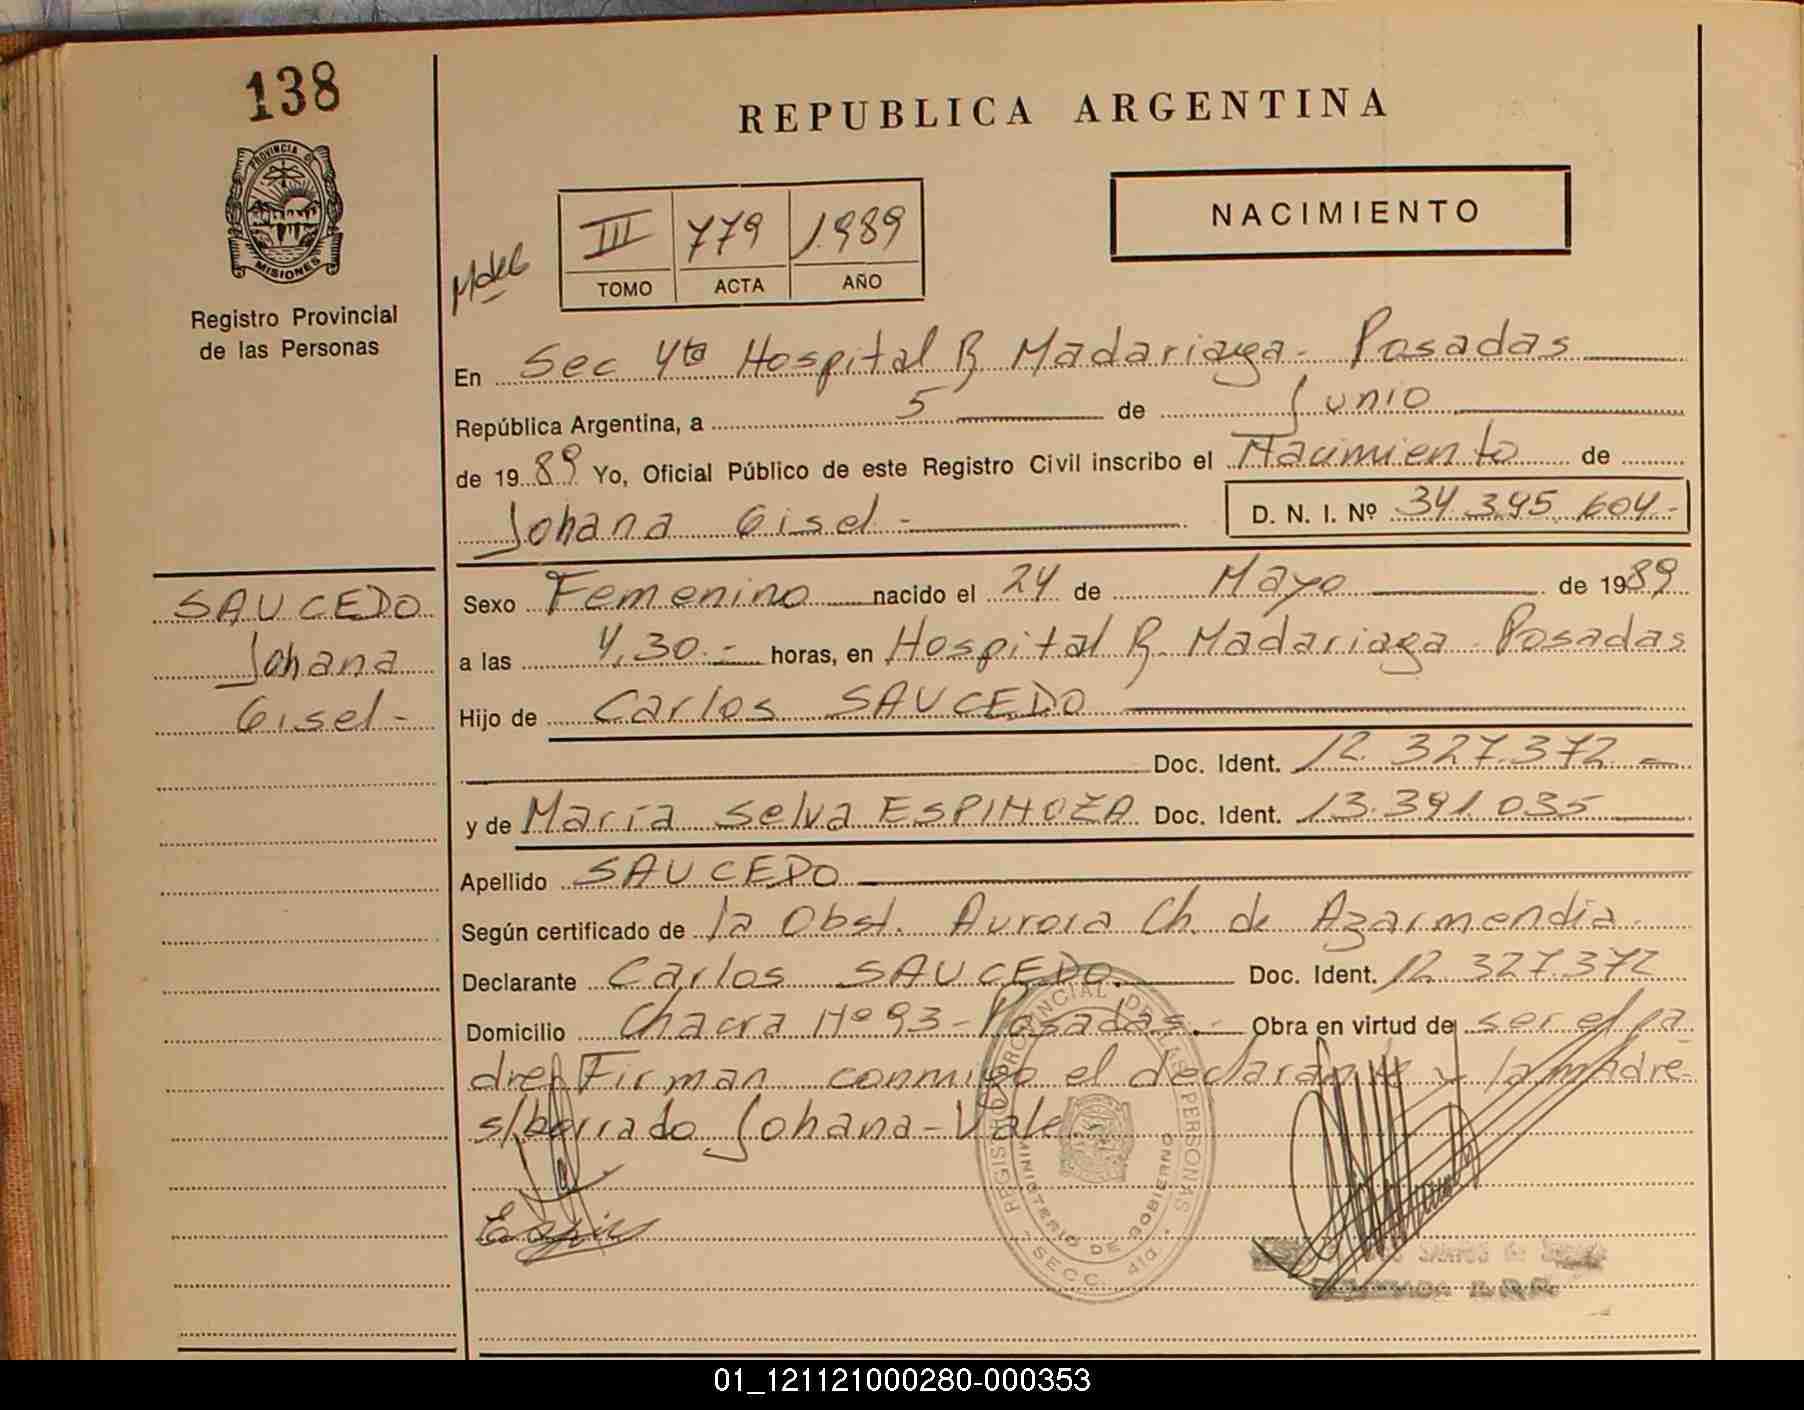 138
PROVINCIA DE
MISIONES
Registro Provincial
de las Personas
REPUBLICA ARGENTINA
NACIMIENTO
III 779 1.989
TOMO ACTA AÑO
En Sec 4ta Hospital R. Madariaga - Posadas
República Argentina, a 5 de Junio
de 1989 Yo, Oficial Público de este Registro Civil inscribo el Nacimiento de
Johana Gisel - D. N. I. Nº 34.395.604-
SAUCEDO
Johana
Gisel -
Sexo Femenino nacido el 24 de Mayo de 1989
a las 4,30.- horas, en Hospital R. Madariaga - Posadas
Hijo de Carlos SAUCEDO
Doc. Ident. 12.327.372 -
y de María Selva ESPINOZA Doc. Ident. 13.391.035
Apellido SAUCEDO
Según certificado de la Obst. Aurora Ch. de Azarmendia
Declarante Carlos SAUCEDO. Doc. Ident. 12.327.372
Domicilio Chacra Nº 93 - Posadas.- Obra en virtud de ser el pa
dre. Firman conmigo el declarante y la madre-
s/borrado Johana - Vale
REGISTRO PROVINCIAL DE LAS PERSONAS
MINISTERIO DE GOBIERNO
SECC. 4ta
01_121121000280-000353